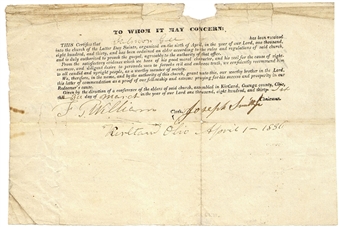 TO WHOM IT MAY CONCERN:
THIS Certifies that has been received
into the church of the Latter Day Saints, organized on the sixth of April, in the year of our Lord, one thousand,
eight hundred, and thirty, and has been ordained an elder according to the rules and regulations of said church,
and is duly authorized to preach the gospel, agreeably to the authority of that office.
From the satisfactory evidence which we have of his good moral character, and his zeal for the cause of righteousness, and diligent desire to persuade men to forsake evil and embrace truth, we confidently recommend him
to all candid and upright people, as a worthy member of society.
We, therefore, in the name, and by the authority of this church, grant unto this, our worthy brother in the Lord,
this letter of commendation as a proof of our fellowship and esteem: praying for his success and prosperity in our
Redeemer's cause.
Given by the direction of a conference of the elders of said church, assembled in Kirtland, Geauga county, Ohio,
the March in the year of our Lord, one thousand, eight hundred, and thirty
Clerk. Joseph Smith Chairman.
Kirtland Ohio April 1